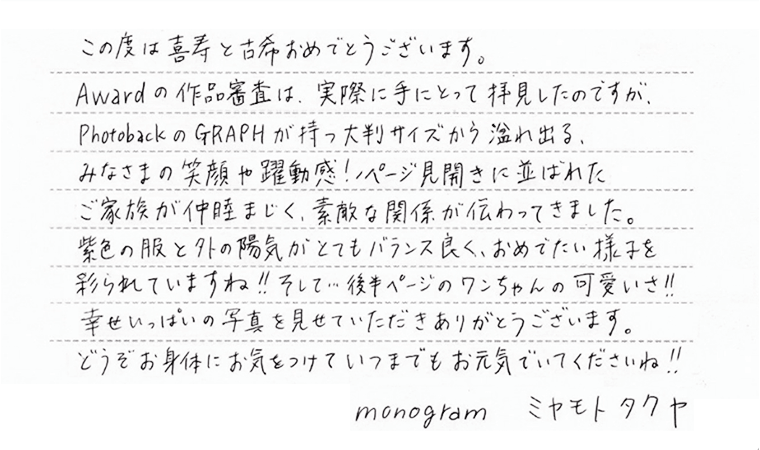 この度は喜寿と古希おめでとうございます。
Awardの作品審査は、実際に手にとって拝見したのですが、
PhotobackのGRAPHが持つ大判サイズから溢れ出る、
みなさまの笑顔や躍動感!ページ見開きに並ばれた
ご家族が仲睦まじく、素敵な関係が伝わってきました。
紫色の服と外の陽気がとてもバランス良く、おめでたい様子を
彩られていますね!!そして…後半ページのワンちゃんの可愛いさ!!
幸せいっぱいの写真を見せていただきありがとうございます。
どうぞお身体にお気をつけていつまでもお元気でいてくださいね!!
monogram ミヤモトタクヤ